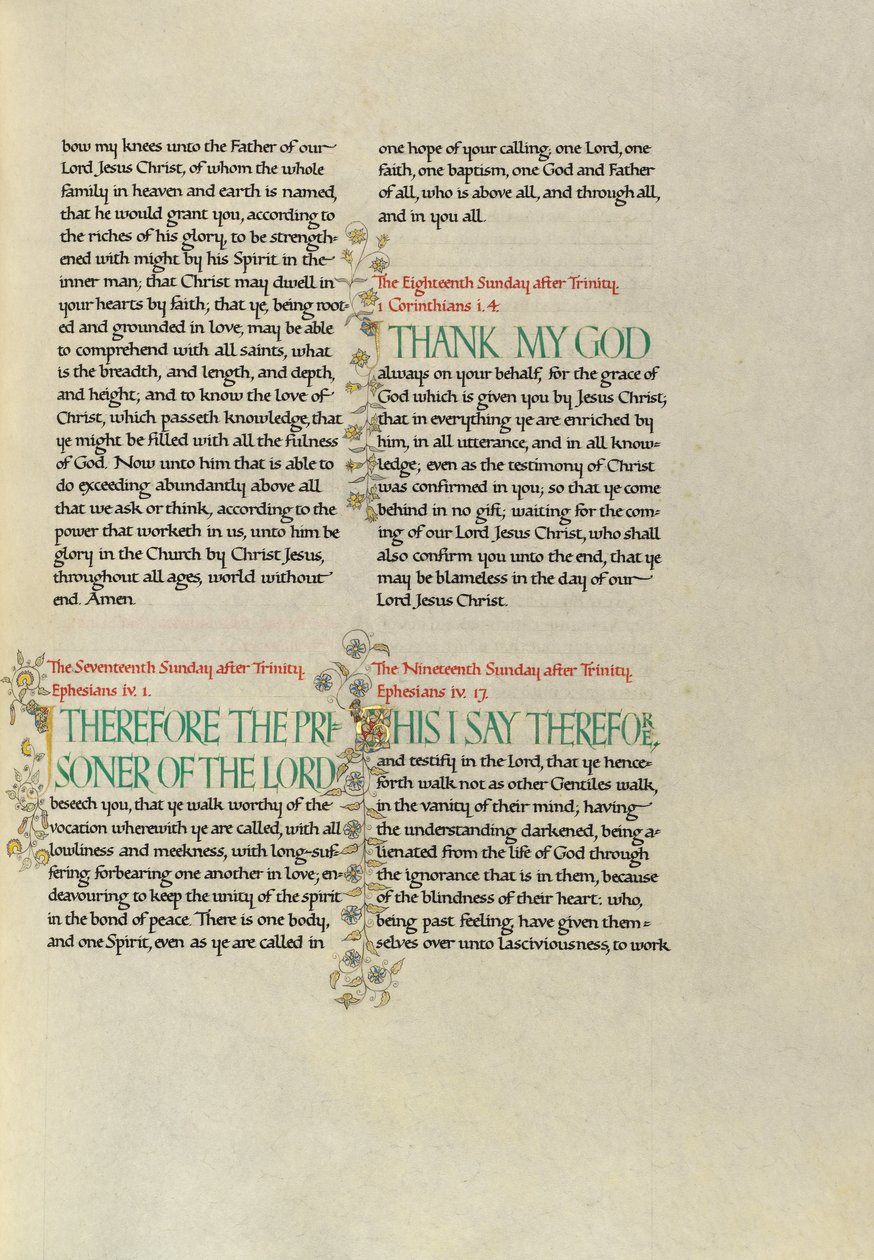 bow my knees unto the Father of our
Lord Jesus Christ, of whom the whole
family in heaven and earth is named,
that he would grant you, according to
the riches of his glory, to be strength=
ened with might by his Spirit in the
inner man; that Christ may dwell in
your hearts by faith; that ye, being root=
ed and grounded in love, may be able
to comprehend with all saints, what
is the breadth, and length, and depth,
and height; and to know the love of
Christ, which passeth knowledge, that
ye might be filled with all the fulness
of God. Now unto him that is able to
do exceeding abundantly above all
that we ask or think, according to the
power that worketh in us, unto him be
glory in the Church by Christ Jesus,
throughout all ages, world without
end. Amen.
The Seventeenth Sunday after Trinity.
Ephesians iv. 1.
I THEREFORE THE PRI=
SONER OF THE LORD
beseech you, that ye walk worthy of the
vocation wherewith ye are called, with all
lowliness and meekness, with long-suf=
fering, forbearing one another in love; en=
deavouring to keep the unity of the spirit
in the bond of peace. There is one body,
and one Spirit, even as ye are called in
one hope of your calling; one Lord, one
faith, one baptism, one God and Father
of all, who is above all, and through all,
and in you all.
The Eighteenth Sunday after Trinity.
1 Corinthians i. 4.
I THANK MY GOD
always on your behalf, for the grace of
God which is given you by Jesus Christ;
that in everything ye are enriched by
him, in all utterance, and in all know=
ledge; even as the testimony of Christ
was confirmed in you; so that ye come
behind in no gift; waiting for the com=
ing of our Lord Jesus Christ, who shall
also confirm you unto the end, that ye
may be blameless in the day of our
Lord Jesus Christ.
The Nineteenth Sunday after Trinity.
Ephesians iv. 17.
THIS I SAY THEREFORE,
and testify in the Lord, that ye hence=
forth walk not as other Gentiles walk,
in the vanity of their mind; having
the understanding darkened, being a=
lienated from the life of God through
the ignorance that is in them, because
of the blindness of their heart: who,
being past feeling, have given them=
selves over unto lasciviousness, to work